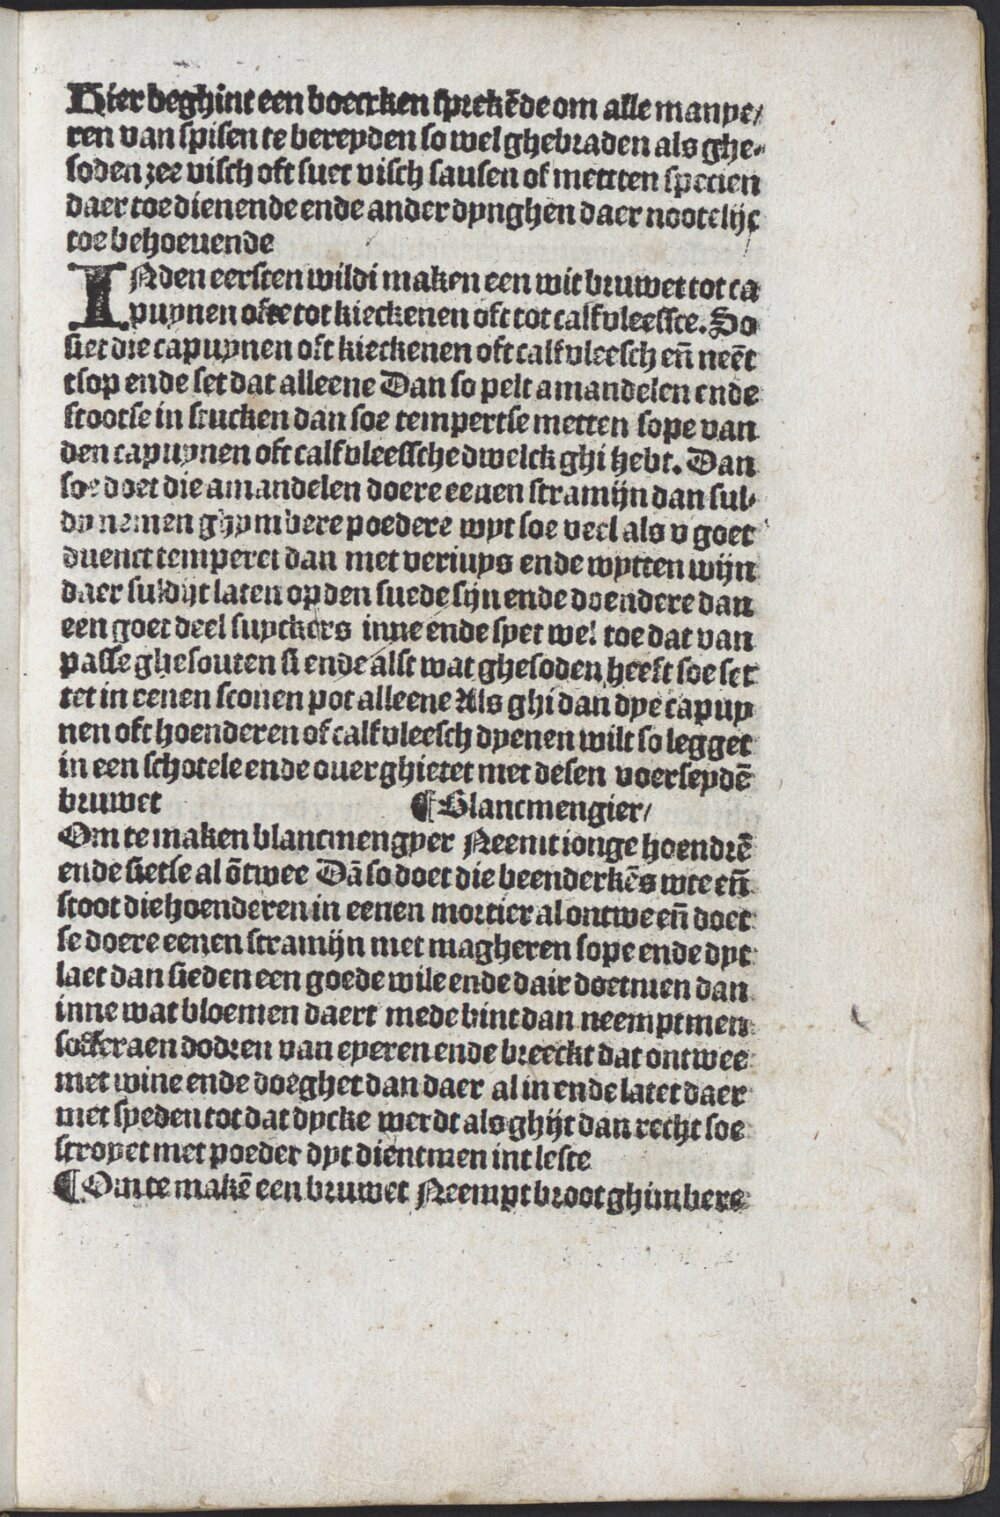 Hier beghint een boecxken sprekēde om alle manye/
ren van spisen te bereyden so wel ghebraden als ghe-
soden zee visch oft suet visch sausen of metten specien
daer toe dienende ende ander dynghen daer nootelijc
toe behoeuende
INden eersten wildi maken een wit bruwet tot ca
puynen ofte tot kieckenen oft tot calfvleessce. So
siet die capuynen oft kieckenen oft calfvleesch eñ neēt
tsop ende set dat alleene Dan so pelt amandelen ende
stootse in stucken dan soe tempertse metten sope van
den capuynen oft calfvleessche dwelck ghi hebt. Dan
soe doet die amandelen doere eenen stramijn dan sul-
dy nemen ghymbere poedere wyt soe veel als v goet
duenct temperet dan met veriuys ende wytten wijn
daer suldijt laten op den suede sijn ende doendere dan
een goet deel suyckers inne ende syet wel toe dat van
passe ghesouten si ende alst wat ghesoden heeft soe set
tet in eenen sconen pot alleene Als ghi dan dye capuy
nen oft hoenderen of calfvleesch dyenen wilt so legget
in een schotele ende ouerghietet met desen voerseydē
bruwet ¶ Blancmengier/
Om te maken blancmengyer Neemt ionge hoendrē
ende sietse al ōtwee Dā so doet die beenderkēs wte eñ
stoot die hoenderen in eenen mortier al ontwe eñ doet
se doere eenen stramijn met magheren sope ende dyt
laet dan sieden een goede wile ende dair doetmen dan
inne wat bloemen daert mede bint dan neemptmen
sofferaen dodren van eyeren ende breeckt dat ontwee
met wine ende doeghet dan daer al in ende latet daer
met syeden tot dat dycke werdt als ghijt dan recht soe
stroyet met poeder dyt dientmen int leste
¶ Om te makē een bruwet Neempt broot ghimbere